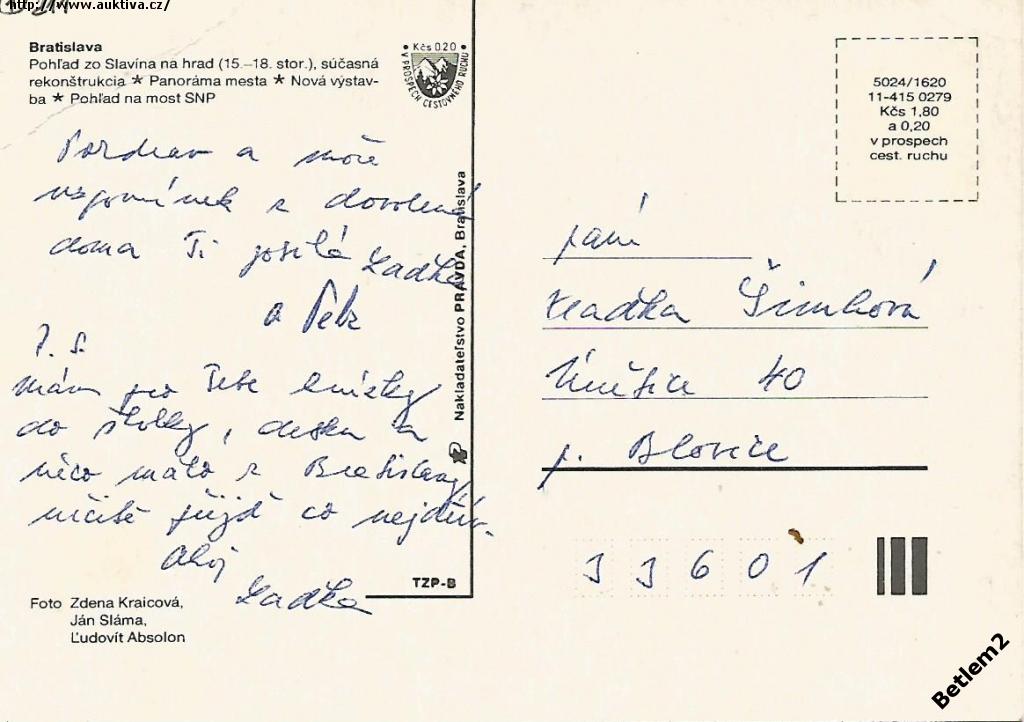 http://www.auktiva.cz/
Bratislava
Pohľad zo Slavína na hrad (15.–18. stor.), súčasná
rekonštrukcia * Panoráma mesta * Nová výstav-
ba * Pohľad na most SNP
• Kčs 0.20 •
V PROSPECH CESTOVNÉHO RUCHU
Pozdrav a moře
vzpomínek z dovolené
doma Ti posílá Laďka
a Petr
P. S.
mám pro Tebe knížky
do školky, desku a
něco málo z Bratislavy
určitě přijď co nejdřív.
Ahoj
Laďka
Nakladateľstvo PRAVDA, Bratislava
TZP-B
Foto Zdena Kraicová,
Ján Sláma,
Ľudovít Absolon
5024/1620
11-415 0279
Kčs 1,80
a 0,20
v prospech
cest. ruchu
paní
Vlaďka
40
p. Blovice
33601
Betlem2